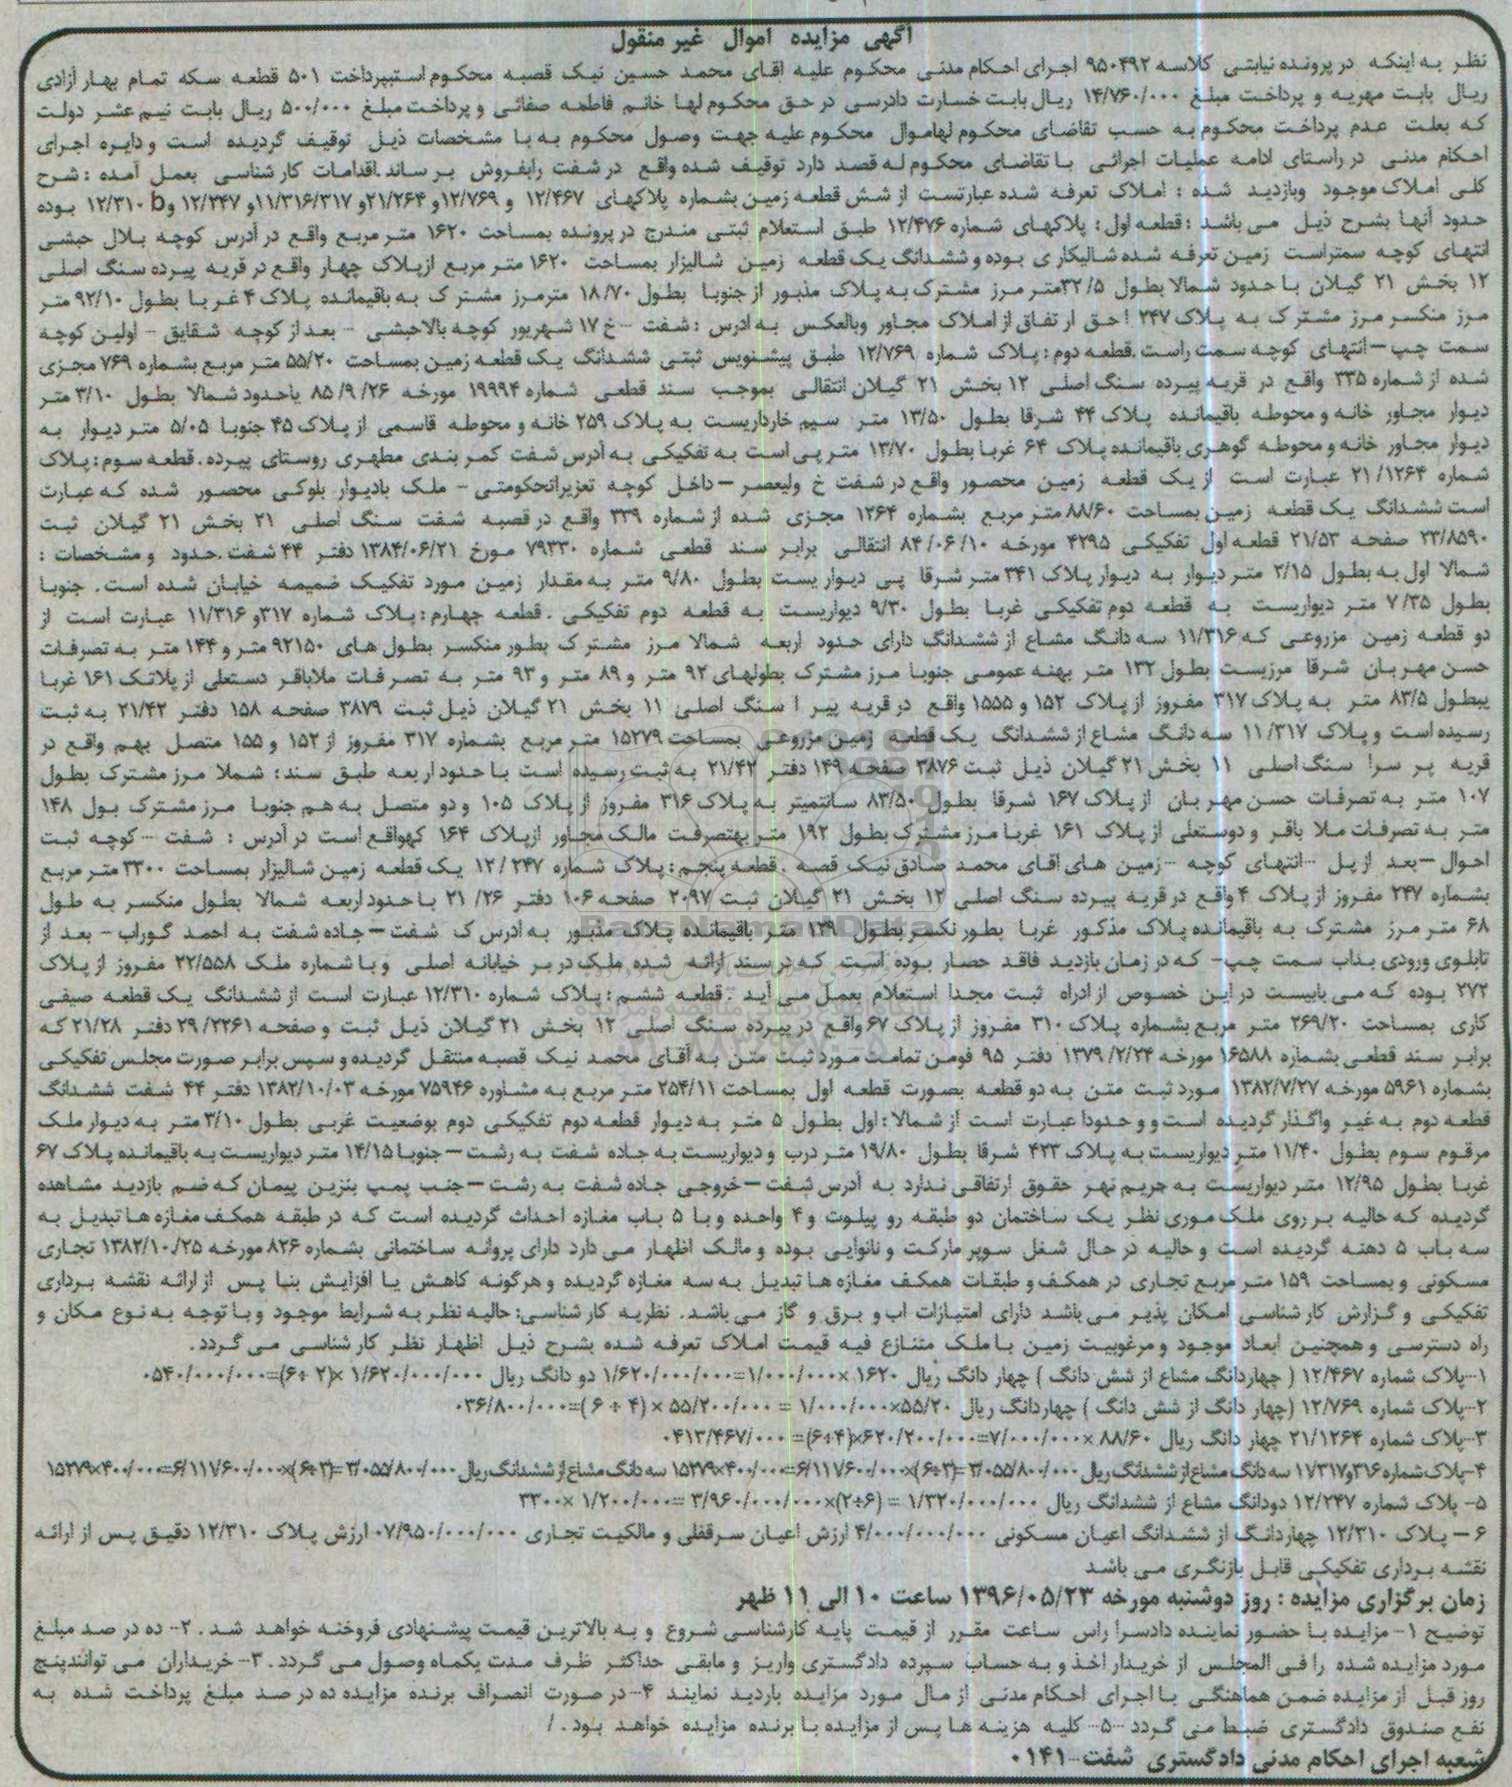 آگهی مزایده اموال غیر منقول
نظر به اینکه در پرونده نیابتی کلاسه ۹۵۰۴۹۲ اجرای احکام مدنی محکوم علیه اقای محمد حسین نیک قصبه محکوم استبپرداخت ۵۰۱ قطعه سکه تمام بهار آزادی
ریال بابت مهریه و پرداخت مبلغ ۱۴/۷۶۰/۰۰۰ ریال بابت خسارت دادرسی در حق محکوم لها خانم فاطمه صفائی و پرداخت مبلغ ۵۰۰/۰۰۰ ریال بابت نیم عشر دولت
که بعلت عدم پرداخت محکوم به حسب تقاضای محکوم لهاموال محکوم علیه جهت وصول محکوم به با مشخصات ذیل توقیف گردیده است و دایره اجرای
احکام مدنی در راستای ادامه عملیات اجرائی با تقاضای محکوم له قصد دارد توقیف شده واقع در شفت رابفروش برساند.اقدامات کارشناسی بعمل آمده : شرح
کلی املاک موجود وبازدید شده : املاک تعرفه شده عبارتست از شش قطعه زمین بشماره پلاکهای ۱۲/۴۶۷ و ۱۲/۷۶۹و ۲۱/۲۶۴و ۱۱/۳۱۶/۳۱۷و ۱۲/۲۴۷ وb ۱۲/۳۱۰ بوده
حدود آنها بشرح ذیل می باشد : قطعه اول : پلاکهای شماره ۱۲/۴۷۶ طبق استعلام ثبتی مندرج در پرونده بمساحت ۱۶۲۰ متر مربع واقع در آدرس کوچه بلال حبشی
انتهای کوچه سمتراست زمین تعرفه شده شالیکاری بوده و ششدانگ یک قطعه زمین شالیزار بمساحت ۱۶۲۰ متر مربع ازپلاک چهار واقع در قریه پیرده سنگ اصلی
۱۲ بخش ۲۱ گیلان با حدود شمالا بطول ۳۲/۵متر مرز مشترک به پلاک مذبور از جنوبا بطول ۱۸/۷۰ مترمرز مشترک به باقیمانده پلاک ۴ غربا بطول ۹۲/۱۰ متر
مرز منکسر مرز مشترک به پلاک ۲۴۷ ! حق ارتفاق از املاک مجاور وبالعکس به ادرس : شفت –خ ۱۷ شهریور کوچه بالاحبشی – بعد از کوچه شقایق – اولین کوچه
سمت چپ –انتهای کوچه سمت راست .قطعه دوم : پلاک شماره ۱۲/۷۶۹ طبق پیشنویس ثبتی ششدانگ یک قطعه زمین بمساحت ۵۵/۲۰ متر مربع بشماره ۷۶۹ مجزی
شده از شماره ۳۳۵ واقع در قریه پیرده سنگ اصلی ۱۲ بخش ۲۱ گیلان انتقالی بموجب سند قطعی شماره ۱۹۹۹۴ مورخه ۸۵/۹/۲۶ یاحدود شمالا بطول ۳/۱۰ متر
دیوار مجاور خانه و محوطه باقیمانده پلاک ۴۴ شرقا بطول ۱۳/۵۰ متر سیم خارداریست به پلاک ۲۵۹ خانه و محوطه قاسمی از پلاک ۴۵ جنوبا ۵/۰۵ متر دیوار به
دیوار مجاور خانه و محوطه گوهری باقیمانده پلاک ۶۴ غربا بطول ۱۳/۷۰ متر پی است به تفکیکی به آدرس شفت کمربندی مطهری روستای پیرده . قطعه سوم : پلاک
شماره ۲۱/۱۲۶۴ عبارت است از یک قطعه زمین محصور واقع در شفت خ ولیعصر –داخل کوچه تعزیراتحکومتی – ملک بادیوار بلوکی محصور شده که عبارت
است ششدانگ یک قطعه زمین بمساحت ۸۸/۶۰ متر مربع بشماره ۱۲۶۴ مجزی شده از شماره ۳۳۹ واقع در قصبه شفت سنگ اصلی ۲۱ بخش ۲۱ گیلان ثبت
۲۳/۸۵۹۰ صفحه ۲۱/۵۳ قطعه اول تفکیکی ۴۲۹۵ مورخه ۸۴/۰۶/۱۰ انتقالی برابر سند قطعی شماره ۷۹۳۳۰ مورخ ۱۳۸۴/۰۶/۲۱ دفتر ۴۴ شفت .حدود و مشخصات :
شمالا اول به بطول ۲/۱۵ متر دیوار به دیوار پلاک ۳۴۱ متر شرقا پی دیواریست بطول ۹/۸۰ متر به مقدار زمین مورد تفکیک ضمیمه خیابان شده است . جنوبا
بطول ۷/۳۵ متر دیواریست به قطعه دوم تفکیکی غربا بطول ۹/۳۰ دیواریست به قطعه دوم تفکیکی . قطعه چهارم : پلاک شماره ۳۱۷و ۱۱/۳۱۶ عبارت است از
دو قطعه زمین مزروعی که ۱۱/۳۱۶ سه دانگ مشاع از ششدانگ دارای حدود اربعه شمالا مرز مشترک بطور منکسر بطول های ۹۲۱۵۰ متر و ۱۴۴ متر به تصرفات
حسن مهربان شرقا مرزیست بطول ۱۳۲ متر بهنه عمومی جنوبا مرز مشترک بطولهای ۹۲ متر و ۸۹ متر و ۹۳ متر به تصرفات ملاباقر دستعلی از پلاتک ۱۶۱ غربا
ببطول ۸۳/۵ متر به پلاک ۳۱۷ مفروز از پلاک ۱۵۲ و ۱۵۵۵ واقع در قریه پیر ا سنگ اصلی ۱۱ بخش ۲۱ گیلان ذیل ثبت ۳۸۷۹ صفحه ۱۵۸ دفتر ۲۱/۴۲ به ثبت
رسیده است و پلاک ۱۱/۳۱۷ سه دانگ مشاع از ششدانگ یک قطعه زمین مزروعی بمساحت ۱۵۲۷۹ متر مربع بشماره ۳۱۷ مفروز از ۱۵۲ و ۱۵۵ متصل بهم واقع در
قریه پر سرا سنگ اصلی ۱۱ بخش ۲۱ گیلان ذیل ثبت ۳۸۷۶ صفحه ۱۴۹ دفتر ۲۱/۴۲ به ثبت رسیده است با حدود اربعه طبق سند : شملا مرز مشترک بطول
۱۰۷ متر به تصرفات حسن مهربان از پلاک ۱۶۷ شرقا بطول ۸۳/۵۰ سانتمیتر به پلاک ۳۱۶ مفروز از پلاک ۱۰۵ و دو متصل به هم جنوبا مرز مشترک بول ۱۴۸
متر به تصرفات ملا باقر و دوستعلی از پلاک ۱۶۱ غربا مرز مشترک بطول ۱۹۲ متر بهتصرفت مالک مجاور ازپلاک ۱۶۴ کهواقع است در آدرس : شفت –کوچه ثبت
احوال –بعد از پل –انتهای کوچه –زمین های اقای محمد صادق نیک قصه . قطعه پنجم : پلاک شماره ۱۲/۲۴۷ یک قطعه زمین شالیزار بمساحت ۳۳۰۰ متر مربع
بشماره ۲۴۷ مفروز از پلاک ۴ واقع در قریه پیرده سنگ اصلی ۱۲ بخش ۲۱ گیلان ثبت ۲۰۹۷ صفحه ۱۰۶ دفتر ۲۱/۲۶ با حدود اربعه شمالا بطول منکسر به طول
۶۸ متر مرز مشترک به باقیمانده پلاک مذکور غربا بطور نکسر بطول ۱۳۹ متر باقیمانده پلاک مذبور به ادرس ک شفت –جاده شفت به احمد گوراب – بعد از
تابلوی ورودی بداب سمت چپ- که در زمان بازدید فاقد حصار بوده است که در سند ارائه شده ملک در بر خیابانه اصلی و با شماره ملک ۲۲/۵۵۸ مفروز از پلاک
۲۷۲ بوده که می بابیست در این خصوص از ادراه ثبت مجدا استعلام بعمل می آید . قطعه ششم : پلاک شماره ۱۲/۳۱۰ عبارت است از ششدانگ یک قطعه صیفی
کاری بمساحت ۲۶۹/۲۰ متر مربع بشماره پلاک ۳۱۰ مفروز از پلاک ۶۷ واقع در پیرده سنگ اصلی ۱۲ بخش ۲۱ گیلان ذیل ثبت و صفحه ۲۹/۲۲۶۱ دفتر ۲۱/۲۸ که
برابر سند قطعی بشماره ۱۶۵۸۸ مورخه ۱۳۷۹/۲/۲۴ دفتر ۹۵ فومن تمامت مورد ثبت متن به آقای محمد نیک قصبه منتقل گردیده و سپس برابر صورت مجلس تفکیکی
بشماره ۵۹۶۱ مورخه ۱۳۸۲/۷/۲۷ مورد ثبت متن به دو قطعه بصورت قطعه اول بمساحت ۲۵۴/۱۱ متر مربع به مشاوره ۷۵۹۴۶ مورخه ۱۳۸۲/۱۰/۰۳ دفتر ۴۴ شفت ششدانگ
قطعه دوم به غیر واگذار گردیده است و و حدودا عبارت است از شمالا : اول بطول ۵ متر به دیوار قطعه دوم تفکیکی دوم بوضعیت غربی بطول ۳/۱۰ متر به دیوار ملک
مرقوم سوم بطول ۱۱/۴۰ متر دیواریست به پلاک ۴۲۳ شرقا بطول ۱۹/۸۰ متر درب و دیواریست به جاده شفت به رشت –جنوبا ۱۴/۱۵ متر دیواریست به باقیمانده پلاک ۶۷
غربا بطول ۱۲/۹۵ متر دیواریست به جریم نهر حقوق ارتفاقی ندارد به آدرس شفت –خروجی جاده شفت به رشت –جنب پمپ بنزین پیمان که ضم بازدید مشاهده
گردیده که حالیه بر روی ملک موری نظر یک ساختمان دو طبقه رو پیلوت و ۴ واحده و با ۵ باب مغازه احداث گردیده است که در طبقه همکف مغازه ها تبدیل به
سه باب ۵ دهنه گردیده است و حالیه در حال شغل سوپر مارکت و نانوایی بوده و مالک اظهار می دارد دارای پروانه ساختمانی بشماره ۸۲۶ مورخه ۱۳۸۲/۱۰/۲۵ تجاری
مسکونی و بمساحت ۱۵۹ متر مربع تجاری در همکف و طبقات همکف مغازه ها تبدیل به سه مغازه گردیده و هرگونه کاهش یا افزایش بنا پس از ارائه نقشه برداری
تفکیکی و گزارش کارشناسی امکان پذیر می باشد دارای امتیازات اب و برق و گاز می باشد . نظریه کارشناسی: حالیه نظر به شرایط موجود و با توجه به نوع مکان و
راه دسترسی و همچنین ابعاد موجود و مرغوبیت زمین با ملک متنازع فیه قیمت املاک تعرفه شده بشرح ذیل اظهار نظر کارشناسی می گردد .
۱–پلاک شماره ۱۲/۴۶۷ ( چهاردانگ مشاع از شش دانگ ) چهار دانگ ریال ۱۶۲۰ ×۱/۰۰۰/۰۰۰=۱/۶۲۰/۰۰۰/۰۰۰ دو دانگ ریال ۱/۶۲۰/۰۰۰/۰۰۰ ×(۲ ÷۶)=۰۵۴۰/۰۰۰/۰۰۰
۲–پلاک شماره ۱۲/۷۶۹ (چهار دانگ از شش دانگ ) چهاردانگ ریال ۵۵/۲۰×۱/۰۰۰/۰۰۰ = ۵۵/۲۰۰/۰۰۰ × (۴ ÷ ۶ )=۰۳۶/۸۰۰/۰۰۰
۳–پلاک شماره ۲۱/۱۲۶۴ چهار دانگ ریال ۸۸/۶۰ ×۷/۰۰۰/۰۰۰=۶۲۰/۲۰۰/۰۰۰×(۴÷۶)= ۰۴۱۳/۴۶۷/۰۰۰
۴–پلاک شماره ۳۱۶و۱۷۳۱۷ سه دانگ مشاع از ششدانگ ریال ۳/۰۵۵/۸۰۰/۰۰۰ =(۳÷۶)×۶/۱۱۷/۶۰۰/۰۰۰=۱۵۲۷۹×۴۰۰/۰۰۰ سه دانگ مشاع از ششدانگ ریال ۳/۰۵۵/۸۰۰/۰۰۰ =(۳÷۶)×۶/۱۱۷/۶۰۰/۰۰۰=۱۵۲۷۹×۴۰۰/۰۰۰
۵– پلاک شماره ۱۲/۲۴۷ دودانگ مشاع از ششدانگ ریال ۱/۳۲۰/۰۰۰/۰۰۰ = (۲÷۶)×۳/۹۶۰/۰۰۰/۰۰۰ =۱/۲۰۰/۰۰۰ ×۳۳۰۰
۶ – پلاک ۱۲/۳۱۰ چهاردانگ از ششدانگ اعیان مسکونی ۴/۰۰۰/۰۰۰/۰۰۰ ارزش اعیان سرقفلی و مالکیت تجاری ۰۷/۹۵۰/۰۰۰/۰۰۰ ارزش پلاک ۱۲/۳۱۰ دقیق پس از ارائه
نقشه برداری تفکیکی قابل بازنگری می باشد
زمان برگزاری مزایده : روز دوشنبه مورخه ۱۳۹۶/۰۵/۲۳ ساعت ۱۰ الی ۱۱ ظهر
توضیح ۱- مزایده با حضور نماینده دادسرا راس ساعت مقرر از قیمت پایه کارشناسی شروع و به بالاترین قیمت پیشنهادی فروخته خواهد شد . ۲- ده در صد مبلغ
مورد مزایده شده را فی المجلس از خریدار اخذ و به حساب سپرده دادگستری واریز و مابقی حداکثر ظرف مدت یکماه وصول می گردد . ۳- خریداران می توانندپنج
روز قبل از مزایده ضمن هماهنگی با اجرای احکام مدنی از مال مورد مزایده باردید نمایند ۴–در صورت انصراف برنده مزایده ده در صد مبلغ پرداخت شده به
نفع صندوق دادگستری ضبط می گردد –۵– کلیه هزینه ها پس از مزایده با برنده مزایده خواهد بود . /
شعبه اجرای احکام مدنی دادگستری شفت–۰۱۴۱